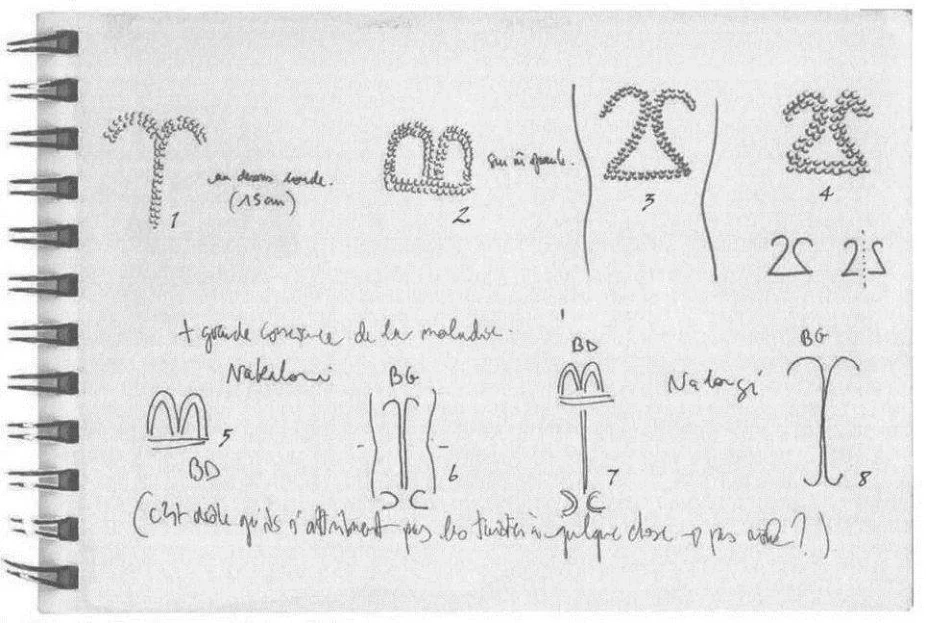 au dessus coude.
(15 cm)
1
2
3
4
2S 2S
+ grande conscience de la maladie.
Nakaloni
BG
BD
Nalongi
BG
5
BD
6
7
8
(C'est drôle qu'ils n'attribuent pas les à quelque chose → pas ?)